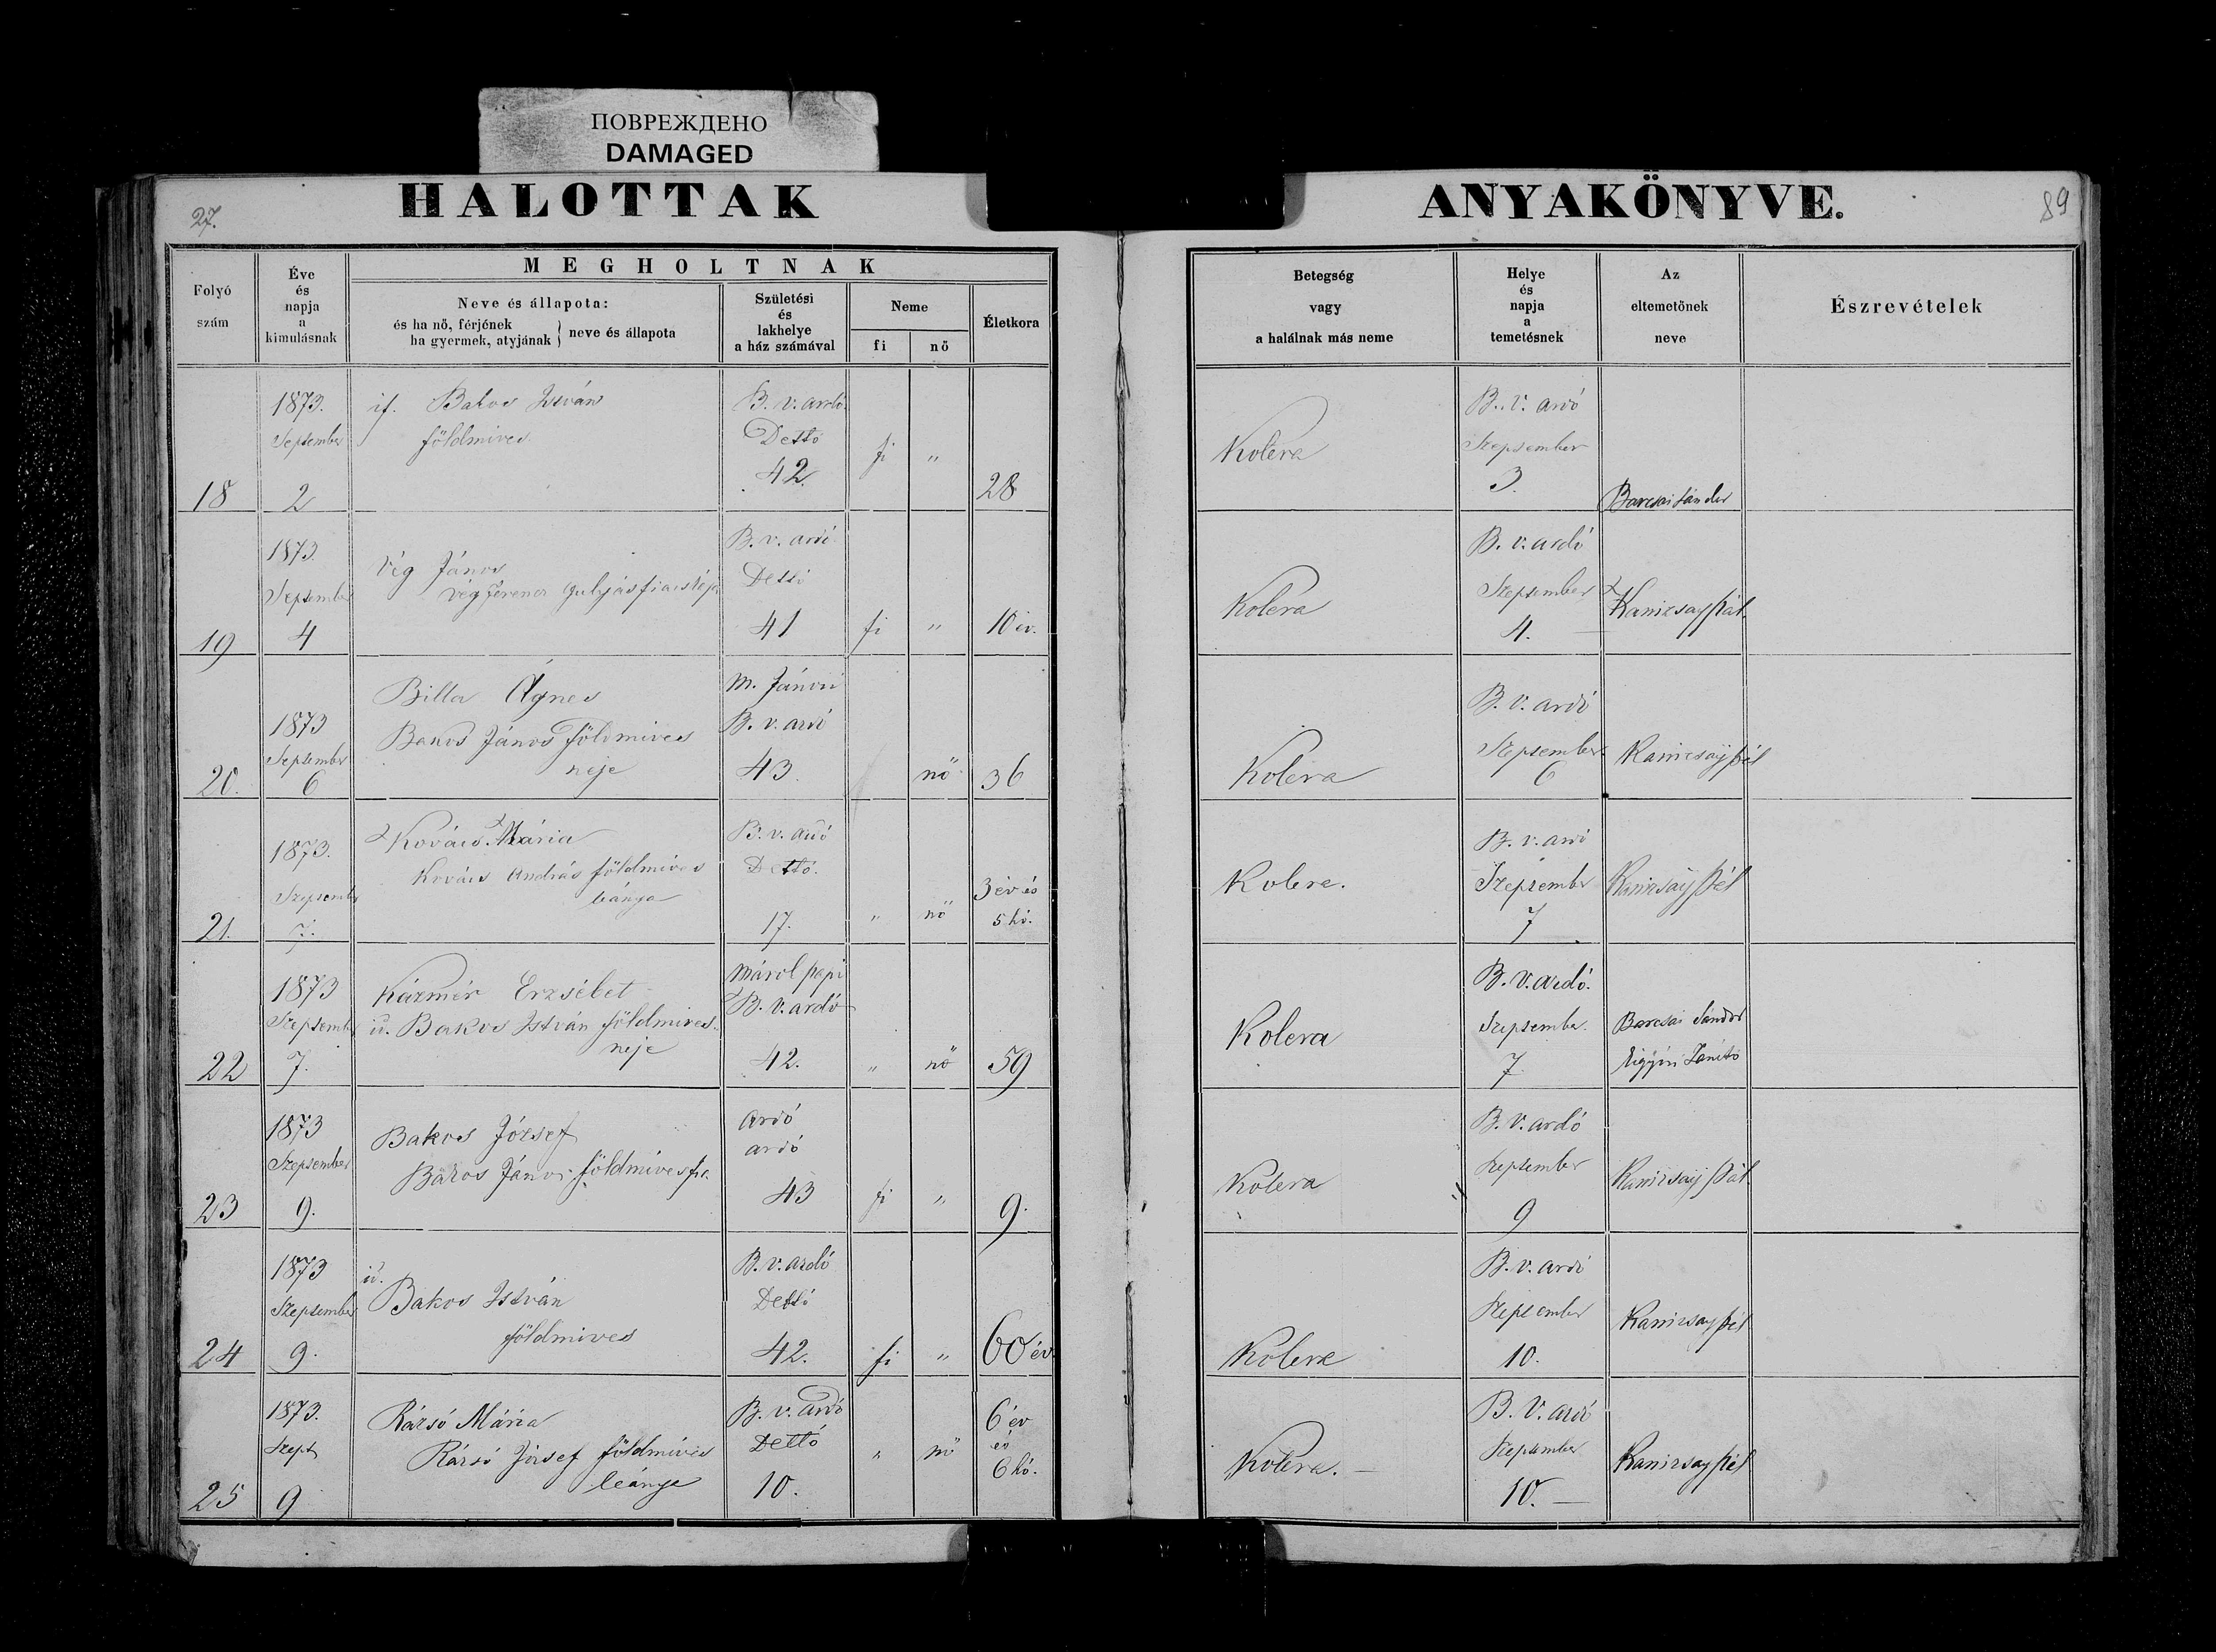 ПОВРЕЖДЕНО
DAMAGED
HALOTTAK
ANYAKÖNYVE.
27.
89
Folyó
szám
Éve
és
napja
a
kimulásnak
MEGHOLTNAK
Neve és állapota:
és ha nő, férjének
ha gyermek, atyjának } neve és állapota
Születési
és
lakhelye
a ház számával
Neme
fi
nő
Életkora
Betegség
vagy
a halálnak más neme
Helye
és
napja
a
temetésnek
Az
eltemetőnek
neve
Észrevételek
18
1873.
September
2
if. Bakos István
földmives
B. v. ardó.
Dettó
42.
fi
"
28
Kolera
B. V. ardó
Szeptember
3.
Barcsai Sándor
19
1873.
September
4
Vig János
Vég Ferencz gulyás fia
B. v. ardó
Dettó
41
fi
"
10 év.
Kolera
B. v. ardó
Szeptember
4.
Kanizsay Pál
20.
1873
September
6
Billa Ágnes
Bakos János földmives
neje
M. Jánosi
B. v. ardó
43.
nő
36
Kolera
B. V. ardó
September
6
Kanizsay Pál
21.
1873.
Szeptemb
7.
Kovács Mária
Kovács András földmives
leánya
B. v. ardó
Dettó.
17.
"
nő
3 év és
5 hó.
Kolera.
B. v. ardó
Szeptember
7
Kanizsay Pál
22
1873
Szeptemb
7.
Kázmér Erzsébet
id. Bakos István földmives
neje
Márok papi
B. V. ardó
42.
"
nő
59
Kolera
B. V. ardó.
Szeptember.
7
Barcsai Sándor
Eigyúi Tanító
23
1873
Szeptember
9.
Bakos József
Bakos János földmives fia
ardó
ardó
43
fi
"
9.
Kolera
B. V. ardó
Szeptember
9
Kanizsay Pál
24
1873
Szeptember
9.
id.
Bakos István
földmives
B. v. ardó
Dettó
42.
fi
"
60 év.
Kolera
B. v. ardó
Szeptember
10.
Kanizsay Pál
25
1873.
Szept
9
Rázsó Mária
Rázsó József földmives
leánya
B. v. ardó
Dettó
10.
"
nő
6 év
és
6 hó.
Kolera.
B. V. ardó
Szeptember
10.
Kanizsay Pál